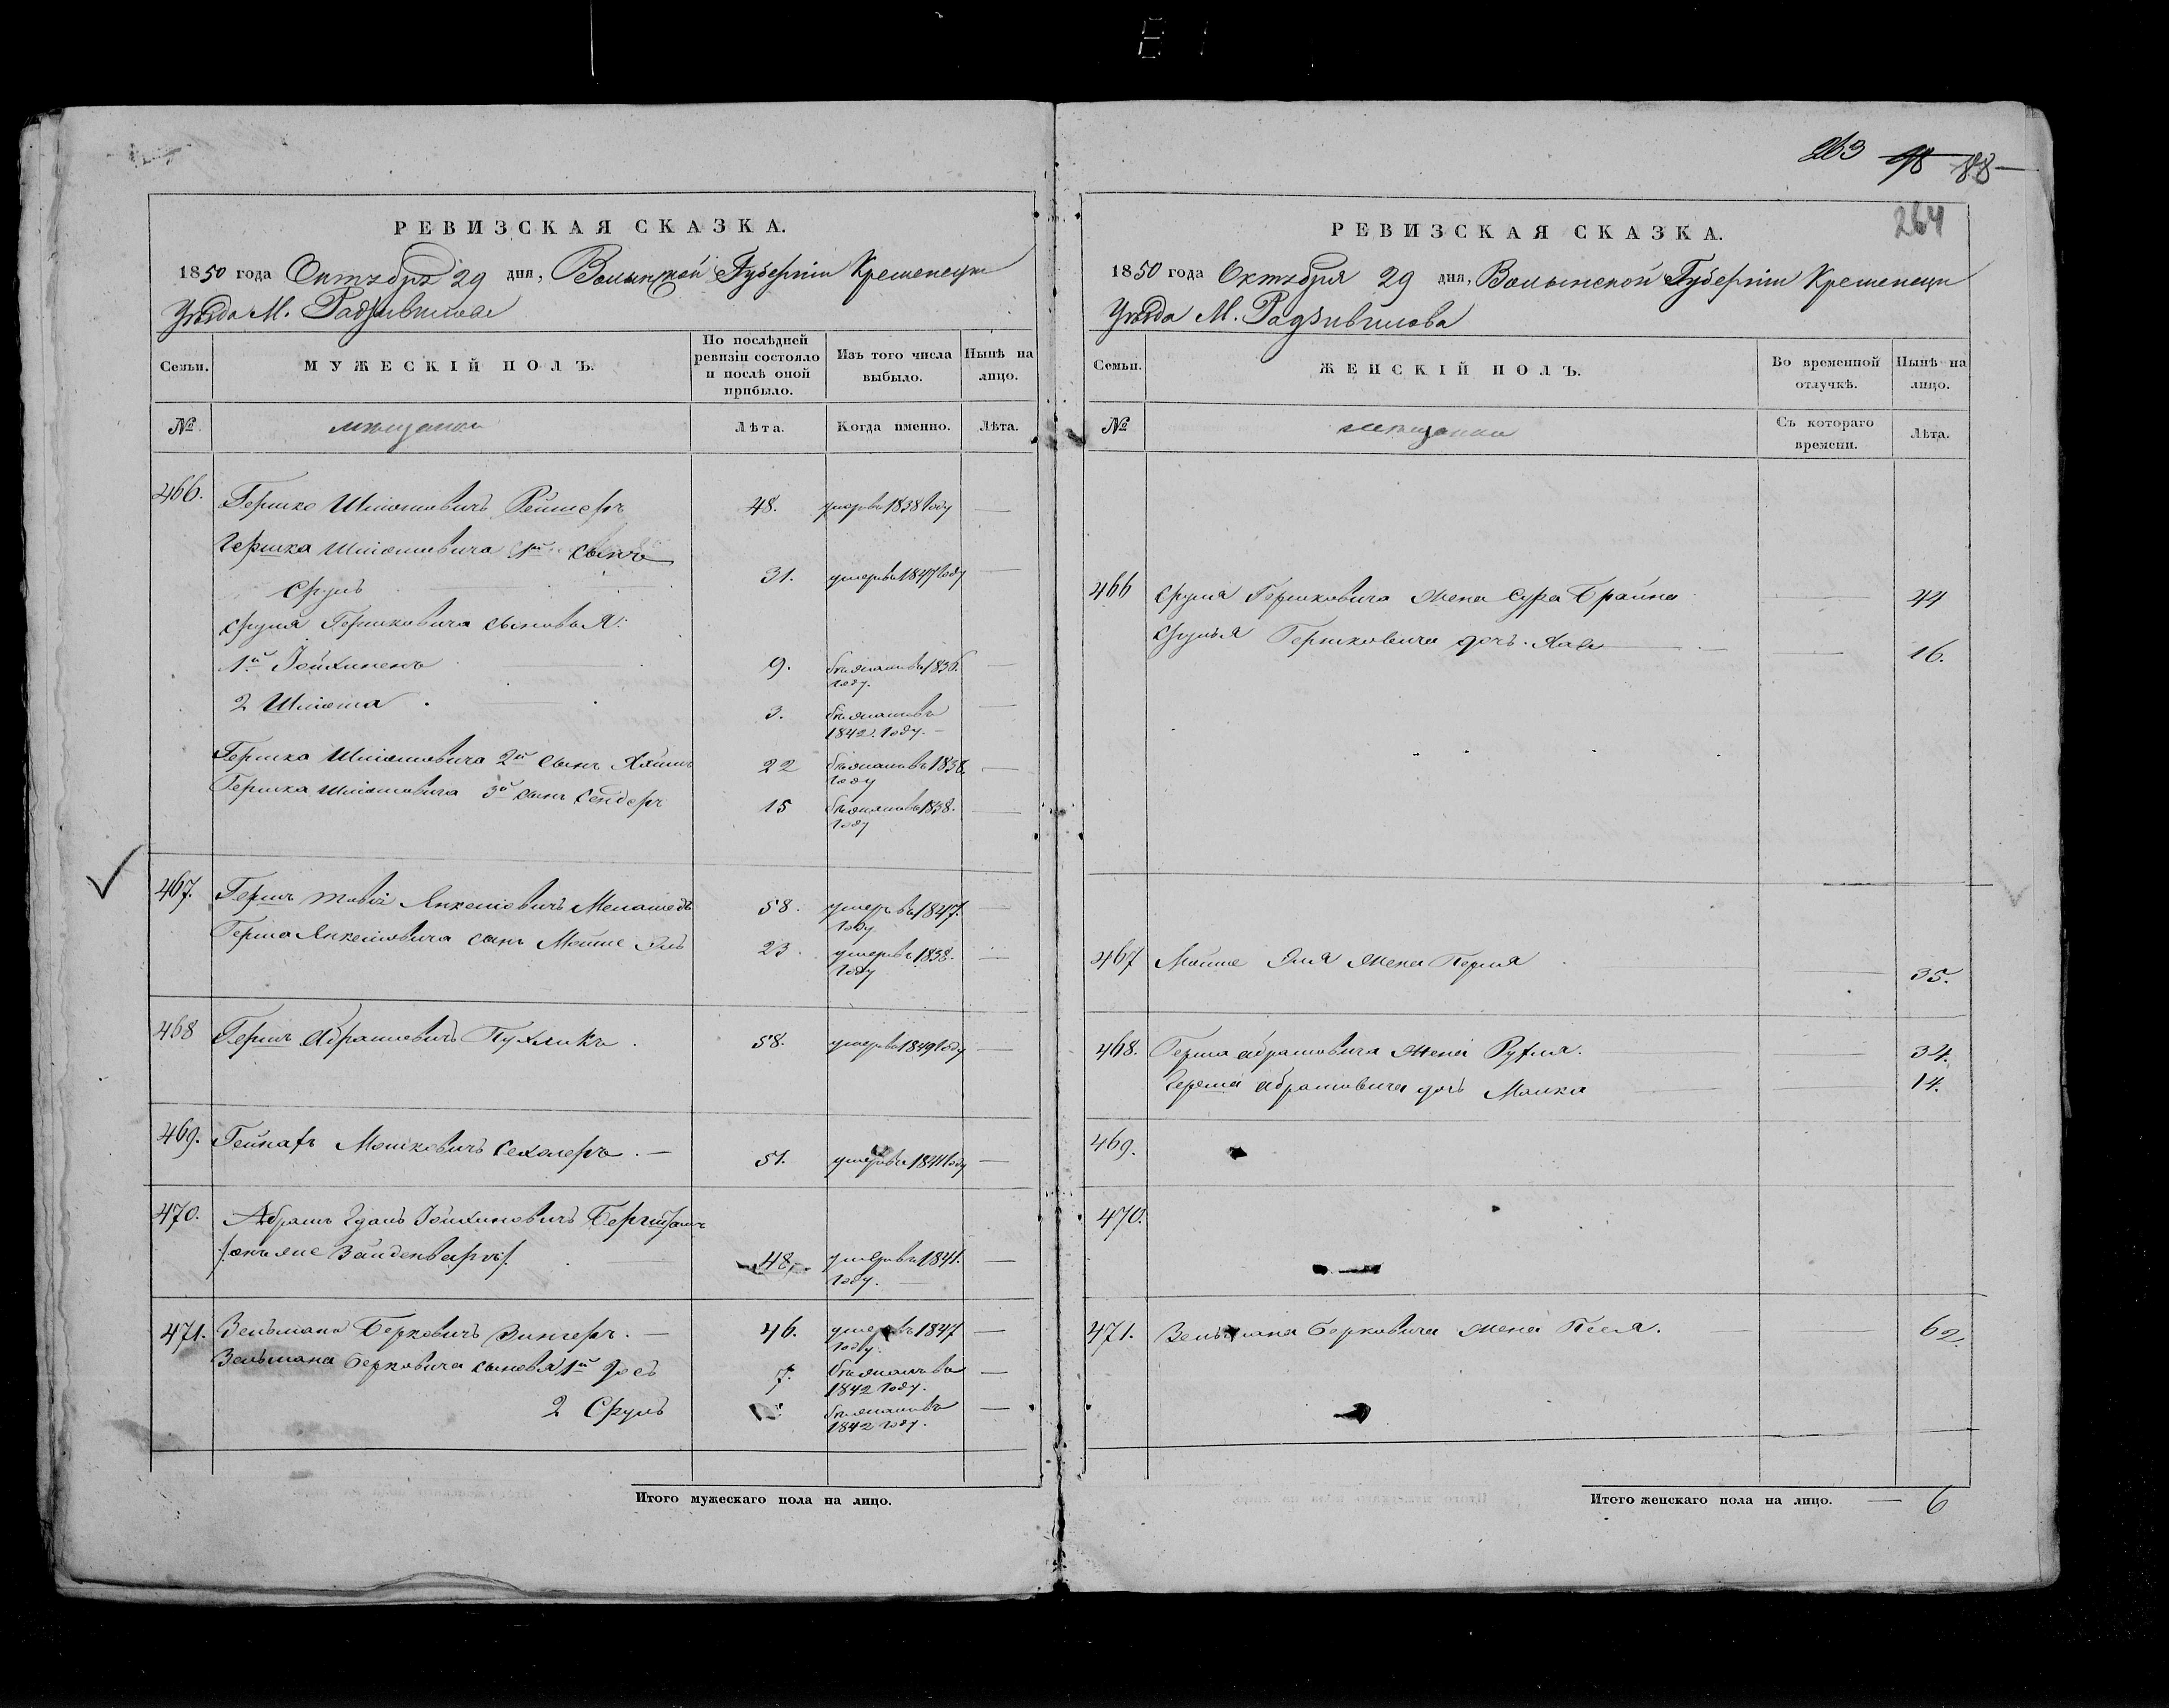 263 98 188
264
РЕВИЗСКАЯ СКАЗКА.
1850 года Октября 29 дня, Волынской Губернiи Кременецка
Уѣзда М. Радзивилова
Семьи.
МУЖЕСКIЙ ПОЛЪ.
По послѣдней
ревизiи состояло
и послѣ оной
прибыло.
Изъ того числа
выбыло.
Нынѣ на
лицо.
№
мѣщане
Лѣта.
Когда именно.
Лѣта.
466. Гершко Шлiомовичъ 48. умеръ въ 1838 году —
Гершка Шлiомовича 1й сынъ
Сруль 31. умеръ въ 1847 году —
Сруля Гершковича сыновья:
1й Iойхиненъ 9. бѣжалъ въ 1836.
году. —
2 Шлiома 3. бѣжалъ въ
1842. году. —
Гершка Шлiомовича 2й сынъ Хаимъ 22 бѣжалъ въ 1838.
году —
Гершка Шлiомовича 3й сынъ Сендеръ 15 бѣжалъ въ 1838.
году —
467. Гершъ Товiй Янкелiовичъ 58. умеръ въ 1847.
году —
Герша Янкелiовича сынъ Мошше Эль 23. умеръ въ 1838.
году —
468 Гершъ Абрамовичъ Пухликъ 58. умеръ въ 1849 году —
469. Мошковичъ Сехлеръ. — 51. умеръ въ 1841 году —
470. Абрамъ Iойхиновичъ
онъ же Вайденбергъ 48. умеръ въ 1841.
году. —
471. Зельмана Берковичъ Зингеръ. — 46. умеръ въ 1847
году. —
Зельмана Берковича сыновья 1й Iосъ 7. бѣжалъ въ
1842 году. —
2 Сруль бѣжалъ въ
1842 году. —
Итого мужескаго пола на лицо.
РЕВИЗСКАЯ СКАЗКА.
1850 года Октября 29 дня, Волынской Губернiи Кременецка
Уѣзда М. Радзивилова
Семьи.
ЖЕНСКIЙ ПОЛЪ.
Во временной
отлучкѣ.
Нынѣ на
лицо.
№
мѣщанки
Съ котораго
времени.
Лѣта.
466 Сруля Гершковича жена Сура Брайна — 44
Сруля Гершковича дочь Хава — 16.
467 Мошше Эля жена Перля — 35.
468. Герша Абрамовича жена Рухля. — 34.
Герша Абрамовича дочь Малка — 14.
469.
470.
471. Зельмана Берковича жена Песя. — 62.
Итого женскаго пола на лицо. — 6